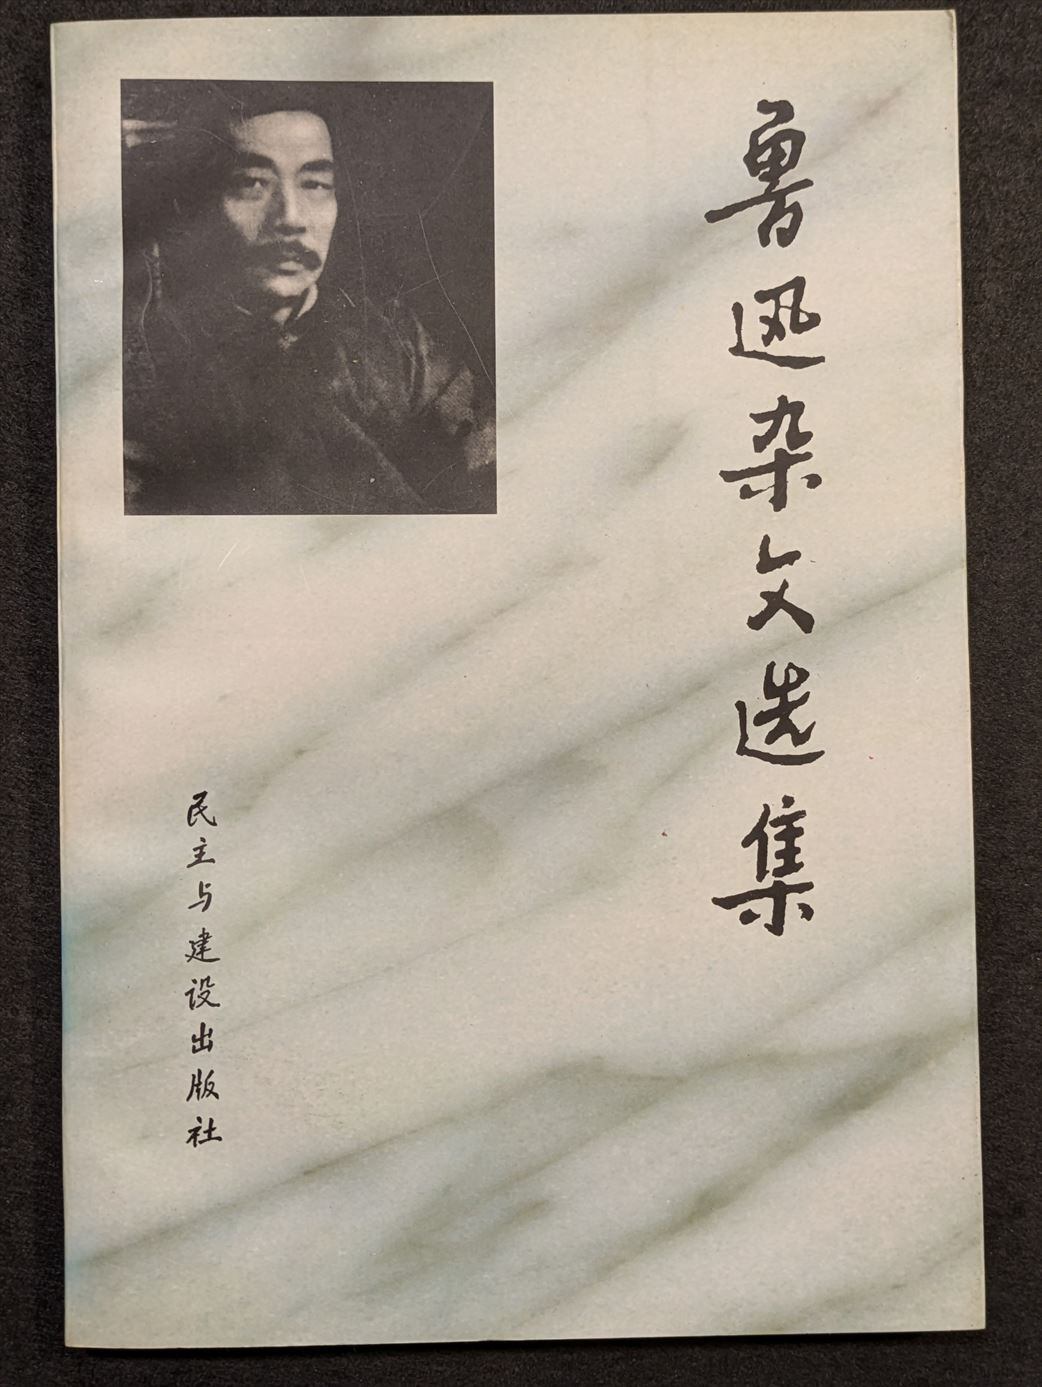 鲁迅杂文选集
民主与建设出版社